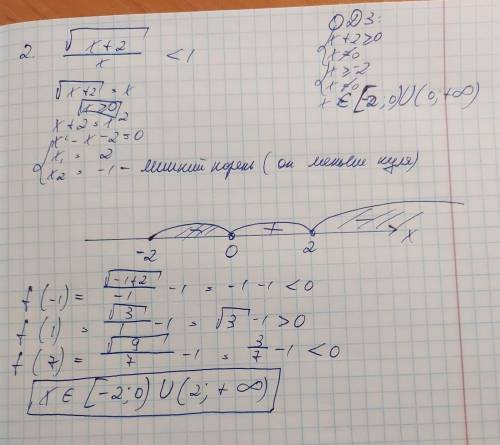 2. √(x+2) / x < 1
ОДЗ:
{ x+2≥0
x≠0
{ x≥-2
x≠0
x ∈ [-2;0)∪(0;+∞)
√(x+2) = x
x≥0
x+2 = x²
x²-x-2=0
{ x₁ = 2
x₂ = -1 - лишний корень (он меньше нуля)
- + -
-2 0 2 x
f(-1) = √(-1+2) / -1 - 1 = -1-1 < 0
f(1) = √3 / 1 - 1 = √3 - 1 > 0
f(7) = √9 / 7 - 1 = 3/7 - 1 < 0
x ∈ [-2;0) ∪ (2;+∞)